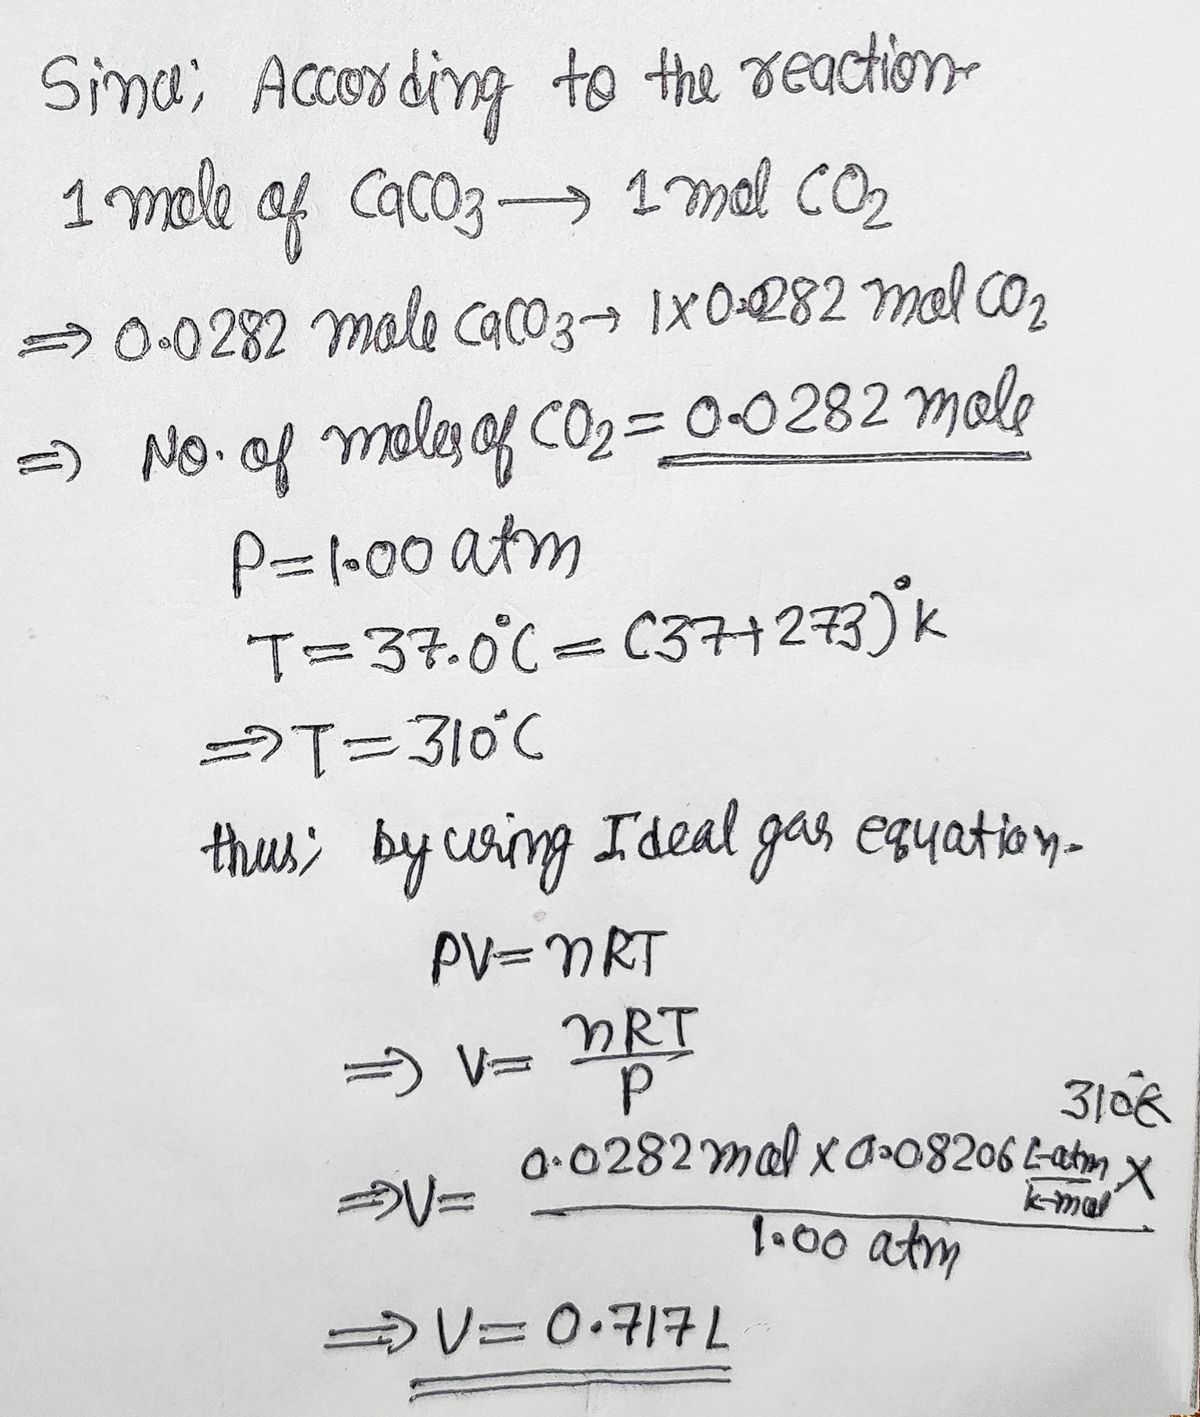 Since; According to the reaction-
1 mole of CaCO3 → 1 mol CO2
⇒ 0.0282 mole CaCO3 → 1×0.0282 mol CO2
⇒ No. of moles of CO2 = 0.0282 mole
P=1.00 atm
T=37.0°C = (37+273)°K
⇒T=310°C
thus; by using Ideal gas equation-
PV=nRT
⇒ V= nRT/P
⇒V= 0.0282 mol × 0.08206 L-atm/K-mol × 310°K / 1.00 atm
⇒V= 0.717L